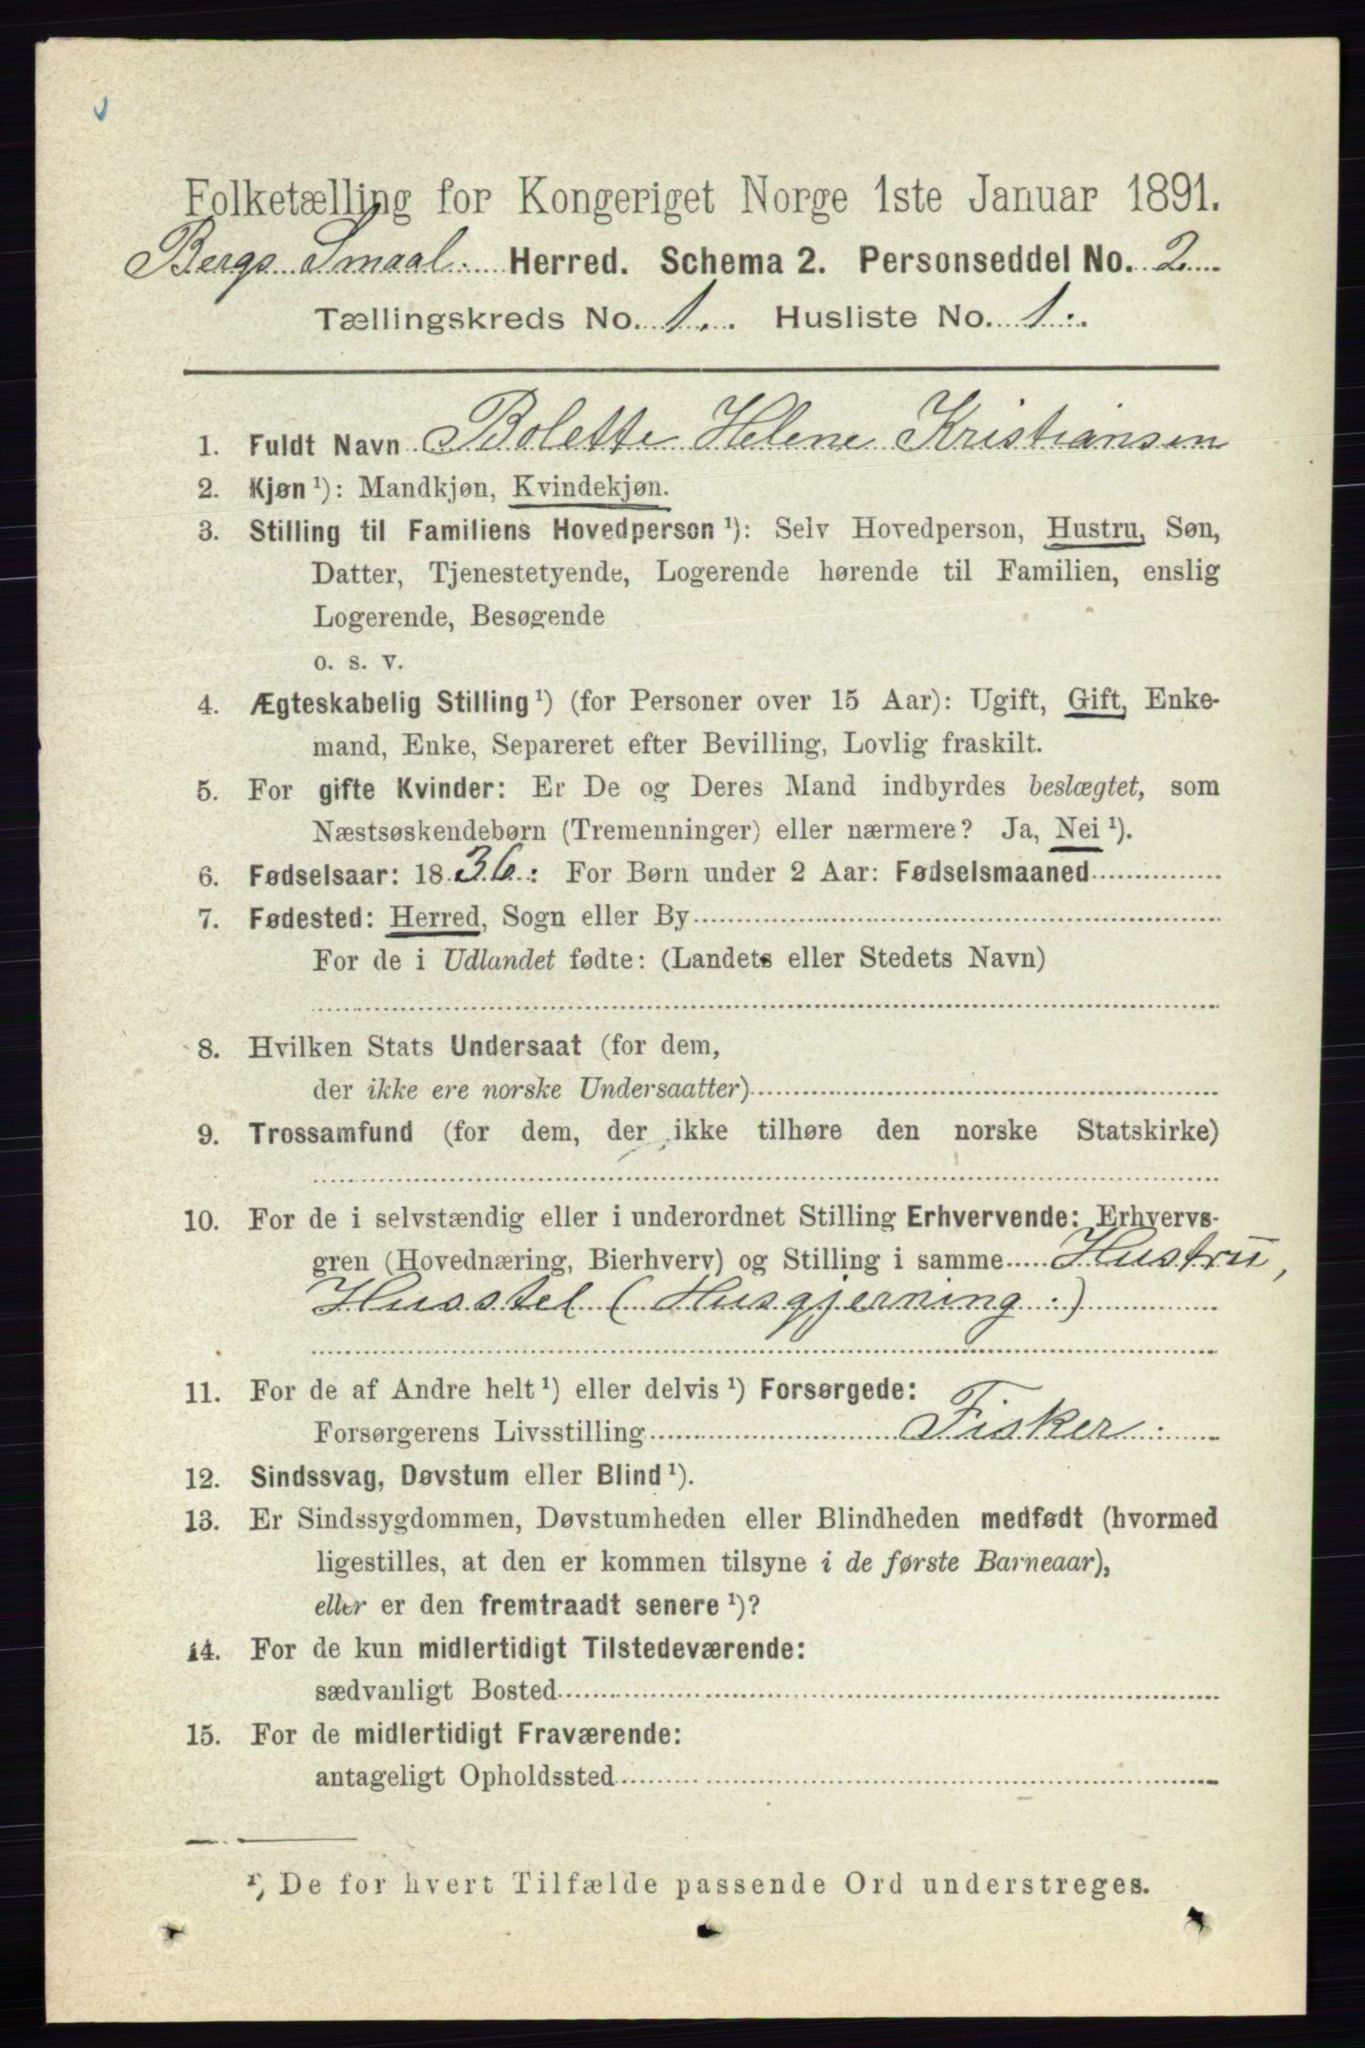 Folketælling for Kongeriget Norge 1ste Januar 1891.
Bergs Smaal. Herred. Schema 2. Personseddel No. 2
Tællingskreds No. 1. Husliste No. 1.
1. Fuldt Navn Bolette Helene Kristiansen
2. Kjøn ¹): Mandkjøn, Kvindekjøn.
3. Stilling til Familiens Hovedperson ¹): Selv Hovedperson, Hustru, Søn,
Datter, Tjenestetyende, Logerende hørende til Familien, enslig
Logerende, Besøgende
o. s. v.
4. Ægteskabelig Stilling ¹) (for Personer over 15 Aar): Ugift, Gift, Enke-
mand, Enke, Separeret efter Bevilling, Lovlig fraskilt.
5. For gifte Kvinder: Er De og Deres Mand indbyrdes beslægtet, som
Næstsøskendebørn (Tremenninger) eller nærmere? Ja, Nei ¹).
6. Fødselsaar: 1836: For Børn under 2 Aar: Fødselsmaaned
7. Fødested: Herred, Sogn eller By
For de i Udlandet fødte: (Landets eller Stedets Navn)
8. Hvilken Stats Undersaat (for dem,
der ikke ere norske Undersaatter)
9. Trossamfund (for dem, der ikke tilhøre den norske Statskirke)
10. For de i selvstændig eller i underordnet Stilling Erhvervende: Erhvervs-
gren (Hovednæring, Bierhverv) og Stilling i samme Hustru,
Husstel (Husgjerning.)
11. For de af Andre helt ¹) eller delvis ¹) Forsørgede:
Forsørgerens Livsstilling Fisker.
12. Sindssvag, Døvstum eller Blind ¹).
13. Er Sindssygdommen, Døvstumheden eller Blindheden medfødt (hvormed
ligestilles, at den er kommen tilsyne i de første Barneaar),
eller er den fremtraadt senere ¹)?
14. For de kun midlertidigt Tilstedeværende:
sædvanligt Bosted
15. For de midlertidigt Fraværende:
antageligt Opholdssted
¹) De for hvert Tilfælde passende Ord understreges.